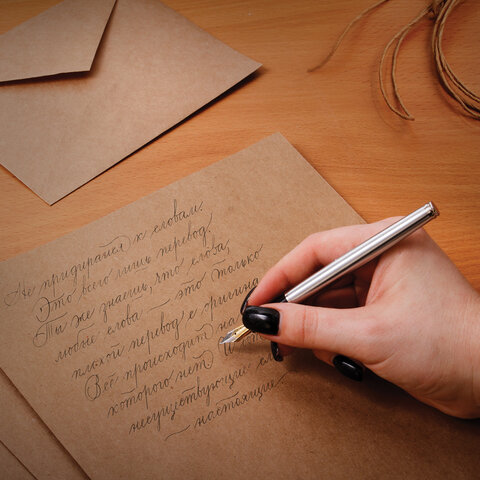 Не придирайся к словам.
Это всего лишь перевод.
Ты же знаешь, что слова,
любые слова — это только
плохой перевод с оригина
Всё происходит на
которого нет
несуществующие
— настоящие